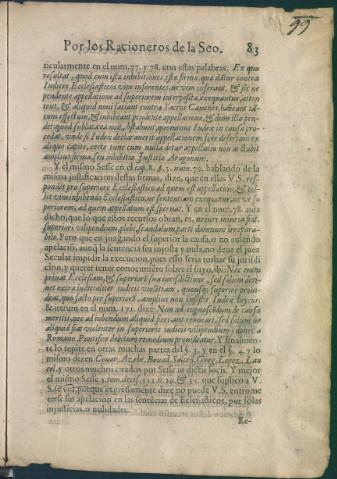 99
Por los Racioneros de la Seo. 83
ticularmente en el num. 77. y 78. con estas palabras. Ex quo
resultat, quod cum ista inhibitiones, & ista firma, quæ datur contra
Iudices Ecclesiasticos vim inferentes, ne vim inferant, & sic ne
pendente appellatione ad superiorem interposita exequantur, atten
tent, & aliquid noui faciant contra Sacros Canones, habeant tã-
tum effectum, & inhibeant pendente appellatione, & dum illa pen-
det quod sublata ea non
aliquo capite, certe tunc cum nulla detur appellatio non
amplius firma, seu inhibitio Iustitiæ Aragonum.
Y el mismo Sesse en el cap. 8. §. 3. num. 79. hablando de la
misma justificacion destas firmas, dize, que en ellas V.S. res-
pondet pro superiore Ecclesiastico ad quem est appellatum, & tol-
lit vim inhibendo Ecclesiastico, ne sententiam exequatur, ne su-
periorem, ad quem appellatum est, spernat. Y en el num. 78. auia
dicho, que lo que estos recursos obran, es, ne
superioris vilipendium, plebi, scandalum, parti damnum irrepara-
bile. Pero que en juzgando el superior la causa, o no auiendo
apelacion, aunq la sentencia sea injusta y nula, no deue el juez
Secular impedir la execucion, pues esso seria turbar su jurisdi
cion, y querer tener conocimiẽto sobre el suyo, ibi: Nec enim
priuat Ecclesiam, & superiores sua iurisdictione, sed solum deti-
net extra iudicialiter iudicis violentiam, quousque superior proui-
deat, quo facto per superiorẽ, amplius non impedit Iudex laycus.
& iterum en el num. 171. dize: Non ad cognoscendum de causæ
meritis, nec ad videndum aliquid
aliquid fiat violenter in superioris iudicis vilipendium, donec a
Romano Pontifice debitum remedium prouideatur. Y finalmen-
te lo repite en otras muchas partes del §. 3. y en el §. 4. y lo
mismo dizen Couar. Azebe. Bouad. Salced. Greg. Lopez. La-
cel. y otros muchos citados por Sesse in dictis locis. Y mejor
el mismo Sesse 3. tom. decis. 312. n. 29. & 35. que suplico a V.
S. se vea, porque expressamente dize no puede V.S. entrome
terse sin apelacion en las sentẽcias de Eclesiasticos, por solas
injusticias, o nulidades.
Re-